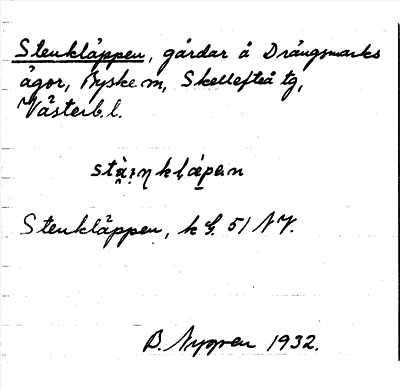 Stenkläppen, gårdar å Drängsmarks
ägor, Byske sn, Skellefteå tg,
Västerb.l.
Stenkläppen, k bl. 51 NV.
B. Nygren 1932.